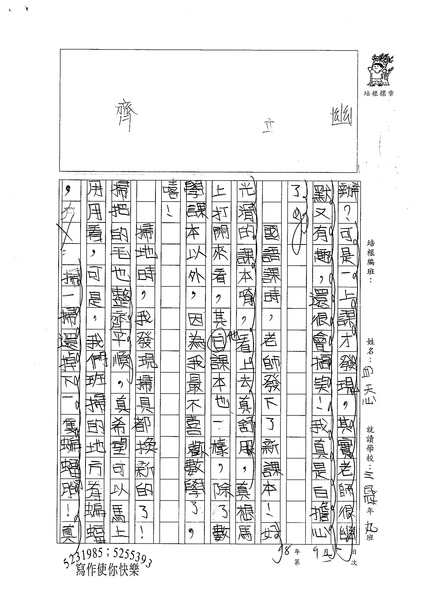 齊
立
幽
培根標章
培根編班：
姓名：
就讀學校：
年
班
辦？可是一上課才發現，其實老師很幽
默又有趣，還很會搞笑！我真是白擔心
了。
國語課時，老師發下了新課本！好
光滑的課本唷，看上去真舒服，真想馬
上打開來看，其他課本也一樣，除了數
學課本以外，因為我最不喜歡數學了，
嘻！
掃地時，我發現掃具都換新的了！
掃把的毛也整齊平順，真希望可以馬上
用用看，可是，我們班掃的地方有蝙蝠
，掃一掃還掉下一隻蝙蝠咧！真
98年9月
第
次
5231985；5255393
寫作使你快樂